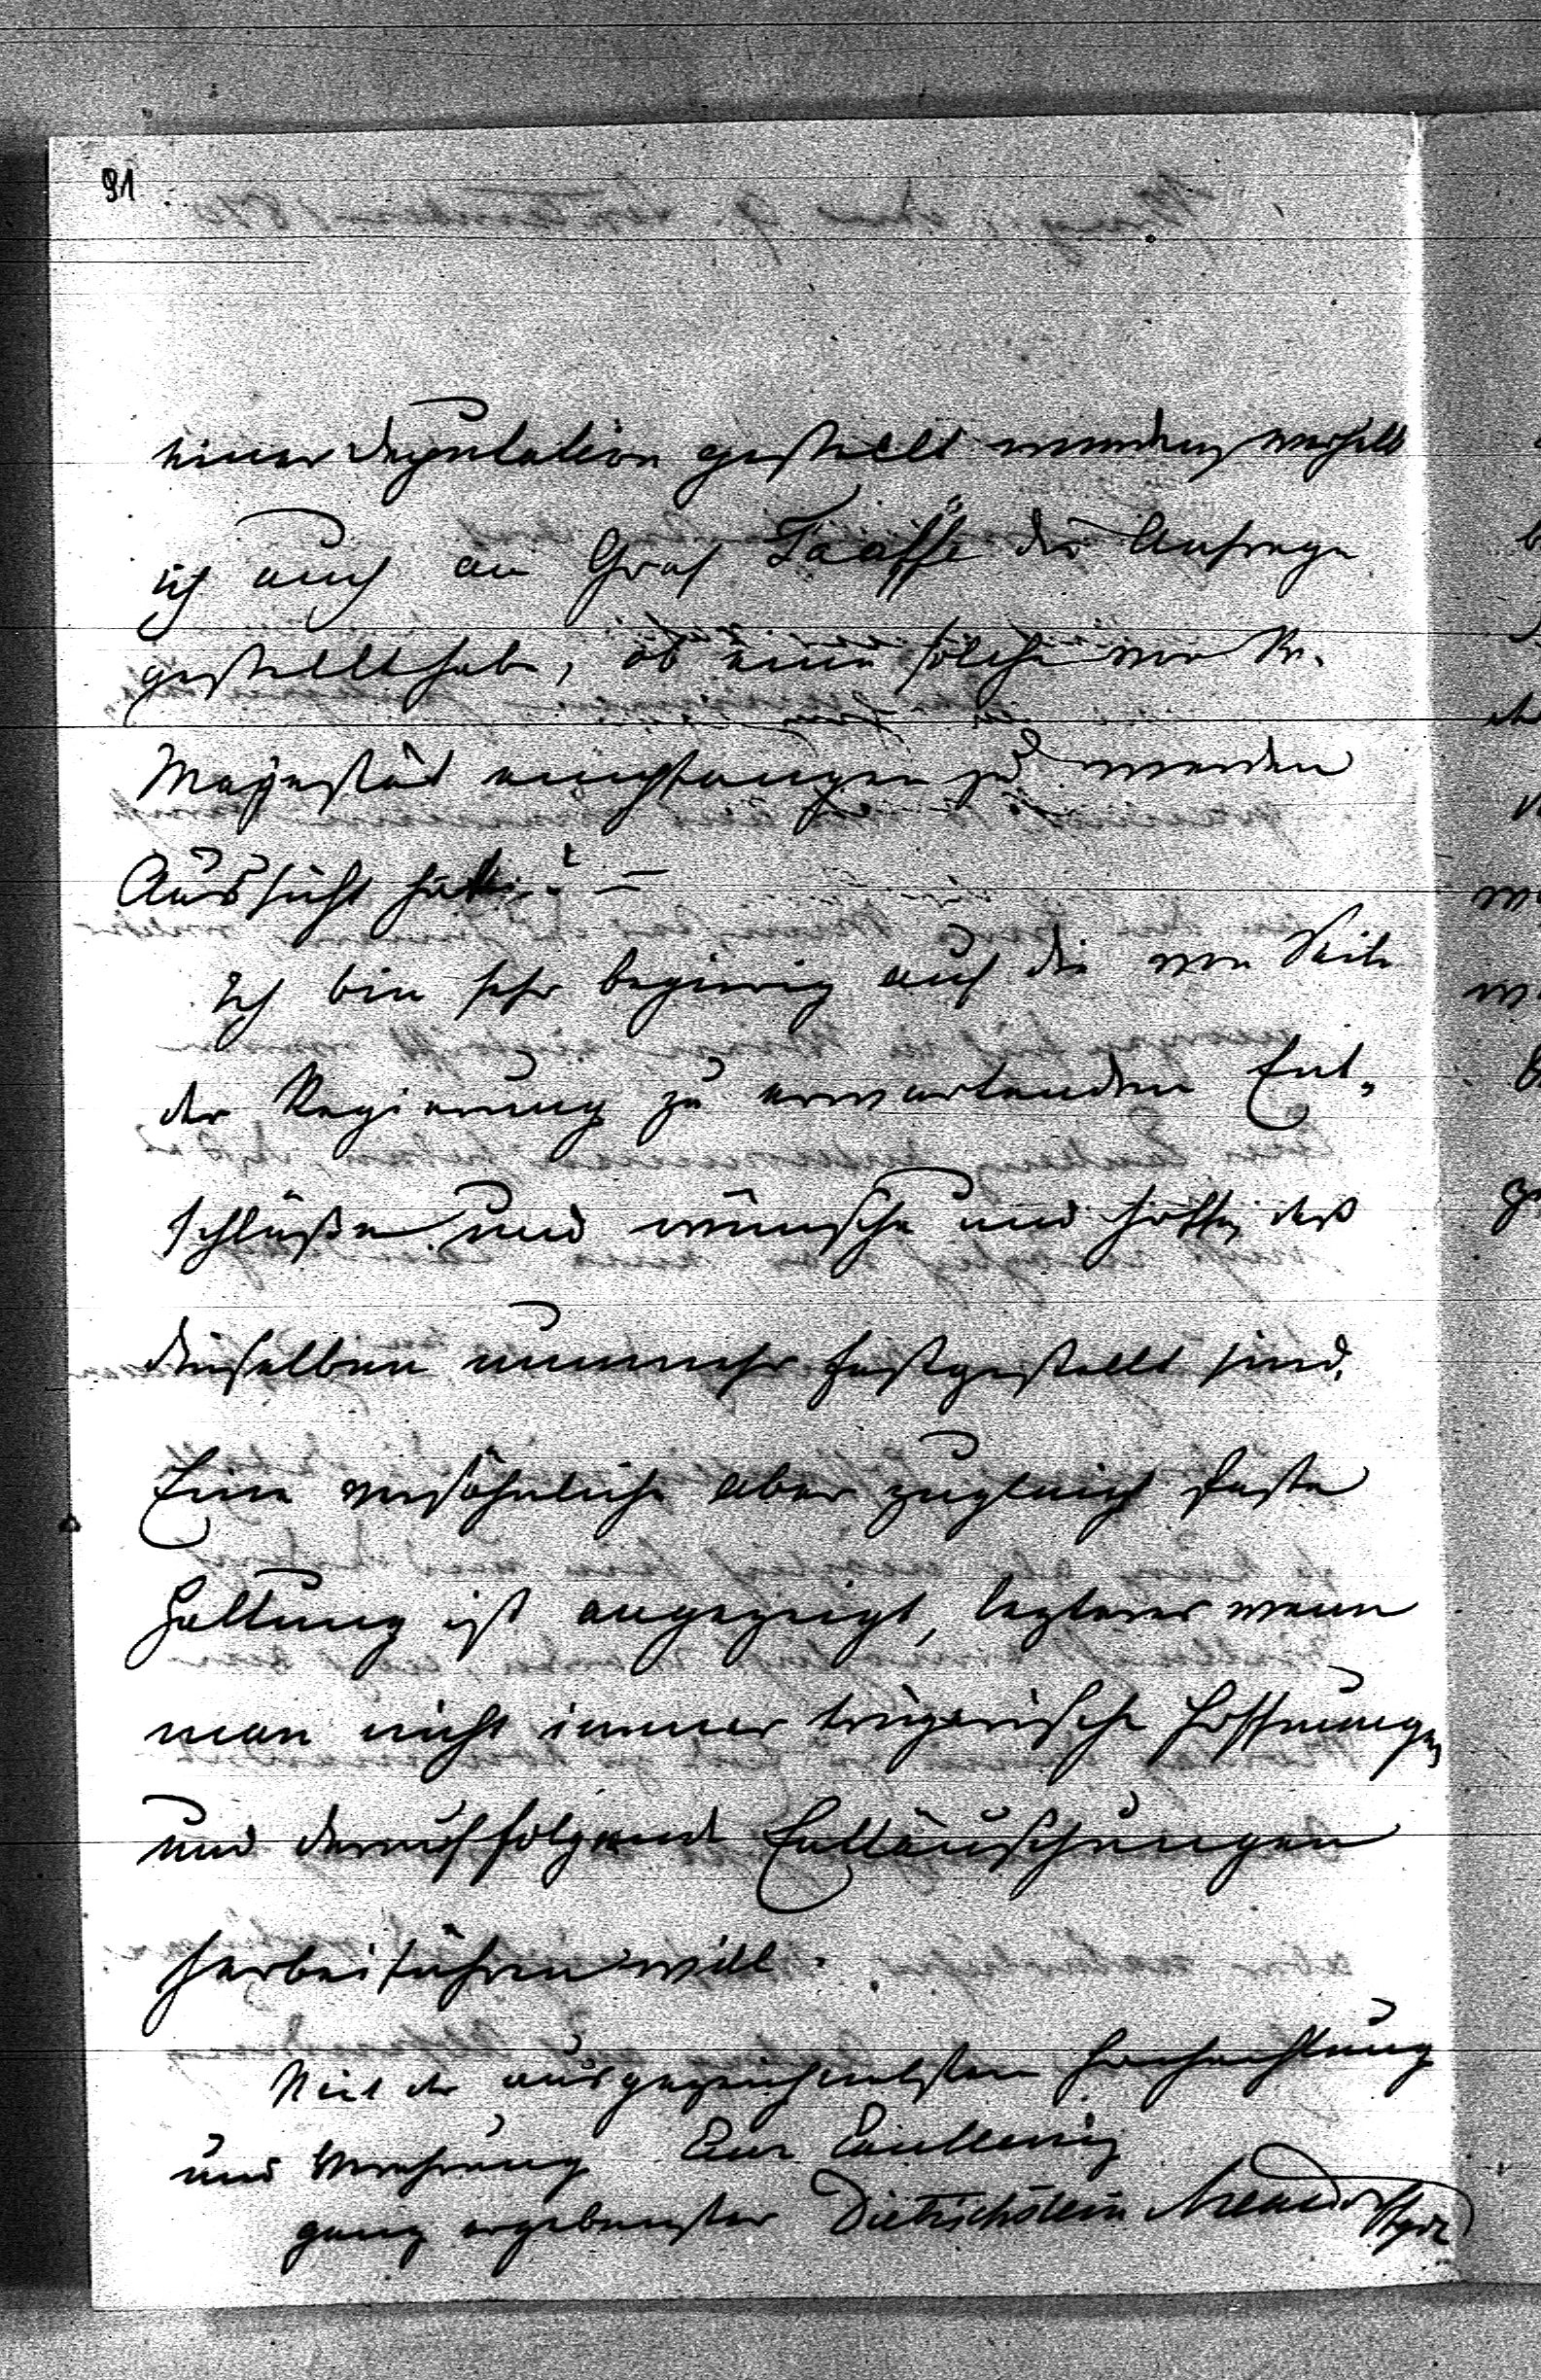 91
einer Deputation gestellt werden, weshalb
ich auch an Graf Taaffe die Anfrage
gestellt habe, ob eine solche von Sr.
Majestät empfangen zu werden
Aussicht hätte? –
Ich bin sehr begierig auf die von Seite
der Regierung zu erwartenden Ent„
schlüße und wünsche und hoffe, daß
dieselben nunmehr festgestellt sind.
Eine versöhnliche aber zugleich feste
Haltung ist angezeigt, lezterer wenn
man nicht immer trügerische Hoffnungen
und darauf folgende Enttäuschungen
herbeiführen will.
Mit der ausgezeichnetsten Hochachtung
und Verehrung Eur Excellenz
ganz ergebenster Dietrichstein Mensdorff